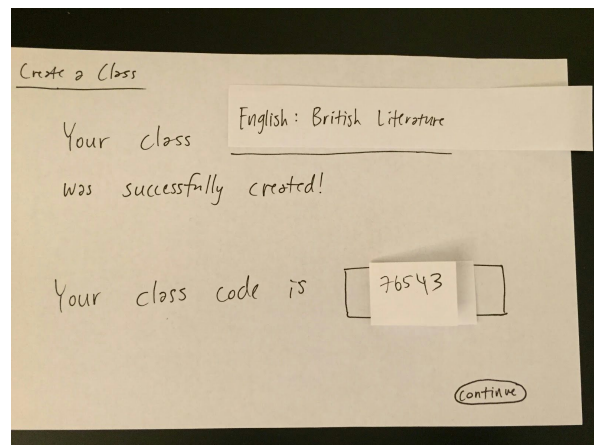 Create a Class
Your class English: British Literature
was successfully created!
Your class code is 76543
Continue